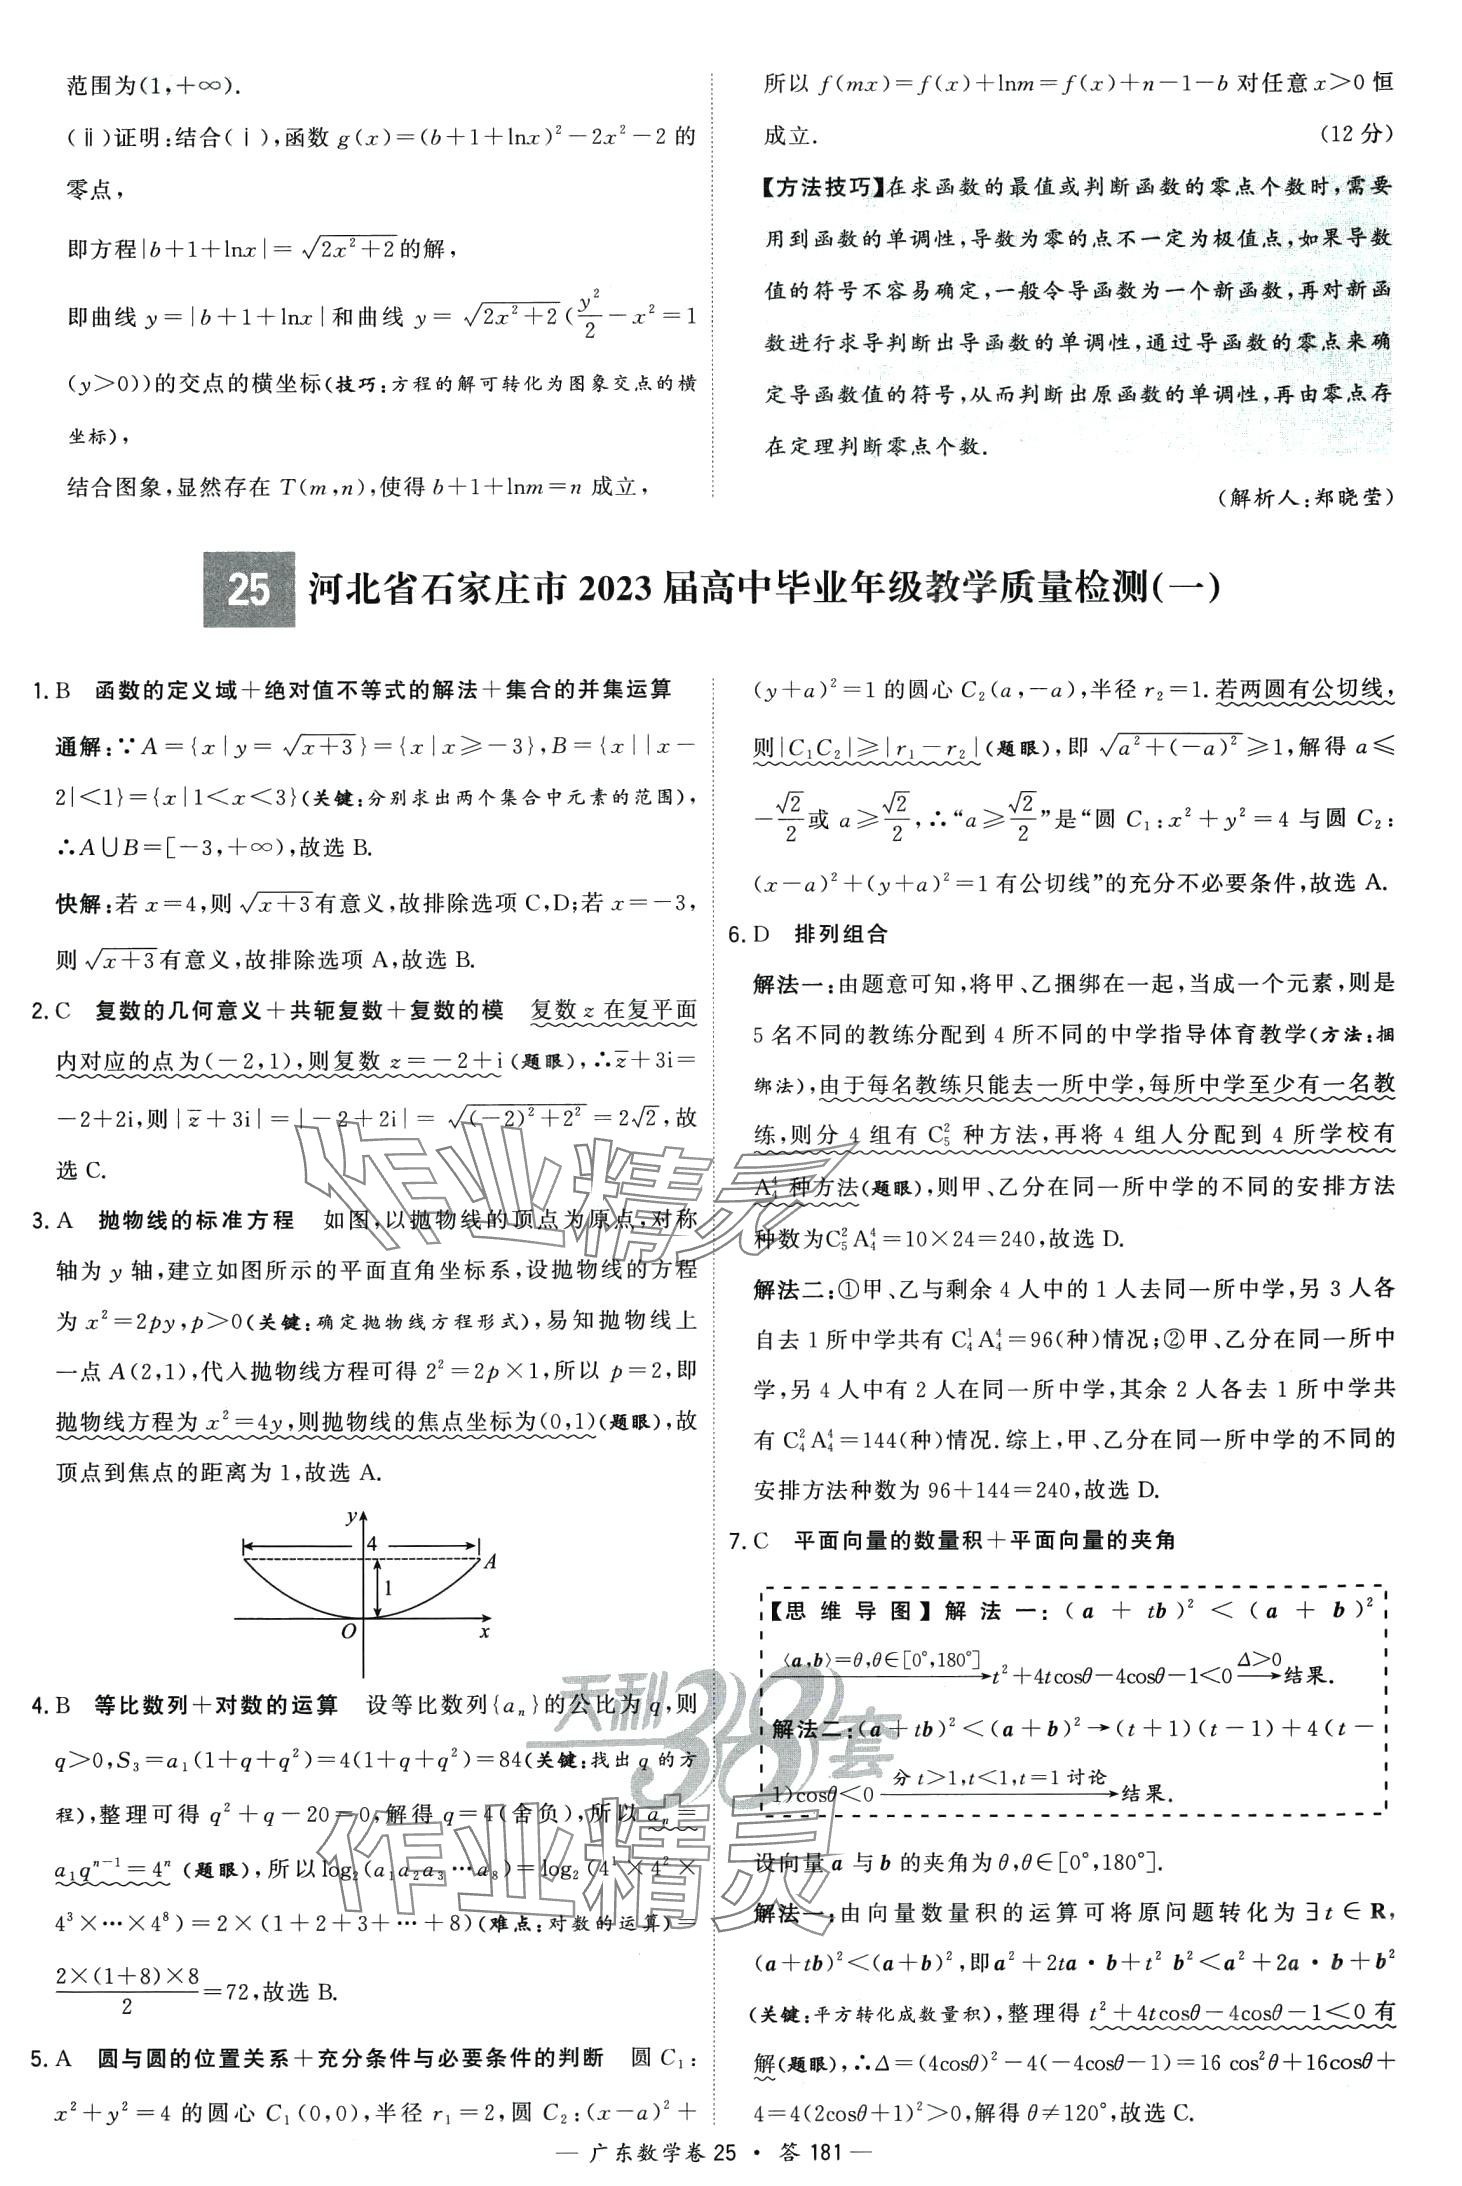 范围为(1,+∞).
(ⅱ)证明:结合(ⅰ),函数 g(x)=(b+1+lnx)²-2x²-2 的
零点,
即方程|b+1+lnx|=√(2x²+2)的解,
即曲线 y=|b+1+lnx|和曲线 y=√(2x²+2)(y²/2-x²=1
(y>0))的交点的横坐标(技巧:方程的解可转化为图象交点的横
坐标),
结合图象,显然存在 T(m,n),使得 b+1+lnm=n 成立,
所以 f(mx)=f(x)+lnm=f(x)+n-1-b 对任意 x>0 恒
成立. (12 分)
【方法技巧】在求函数的最值或判断函数的零点个数时,需要
用到函数的单调性,导数为零的点不一定为极值点,如果导数
值的符号不容易确定,一般令导函数为一个新函数,再对新函
数进行求导判断出导函数的单调性,通过导函数的零点来确
定导函数值的符号,从而判断出原函数的单调性,再由零点存
在定理判断零点个数.
(解析人:郑晓莹)
25 河北省石家庄市 2023 届高中毕业年级教学质量检测(一)
1. B 函数的定义域+绝对值不等式的解法+集合的并集运算
通解:∵A={x|y=√(x+3)}={x|x≥-3},B={x||x-
2|<1}={x|1<x<3}(关键:分别求出两个集合中元素的范围),
∴A∪B=[-3,+∞),故选 B.
快解:若 x=4,则√(x+3)有意义,故排除选项 C,D;若 x=-3,
则√(x+3)有意义,故排除选项 A,故选 B.
2. C 复数的几何意义+共轭复数+复数的模 复数 z 在复平面
内对应的点为(-2,1),则复数 z=-2+i(题眼),∴z̄+3i=
-2+2i,则|z̄+3i|=|-2+2i|=√((-2)²+2²)=2√2,故
选 C.
3. A 抛物线的标准方程 如图,以抛物线的顶点为原点,对称
轴为 y 轴,建立如图所示的平面直角坐标系,设抛物线的方程
为 x²=2py,p>0(关键:确定抛物线方程形式),易知抛物线上
一点 A(2,1),代入抛物线方程可得 2²=2p×1,所以 p=2,即
抛物线方程为 x²=4y,则抛物线的焦点坐标为(0,1)(题眼),故
顶点到焦点的距离为 1,故选 A.
y
4
A
1
O
x
4. B 等比数列+对数的运算 设等比数列{aₙ}的公比为 q,则
q>0,S₃=a₁(1+q+q²)=4(1+q+q²)=84(关键:找出 q 的方
程),整理可得 q²+q-20=0,解得 q=4(舍负),所以 aₙ=
a₁qⁿ⁻¹=4ⁿ(题眼),所以 log₂(a₁a₂a₃…a₈)=log₂(4¹×4²×
4³×…×4⁸)=2×(1+2+3+…+8)(难点:对数的运算)=
2×(1+8)×8/2=72,故选 B.
5. A 圆与圆的位置关系+充分条件与必要条件的判断 圆 C₁:
x²+y²=4 的圆心 C₁(0,0),半径 r₁=2,圆 C₂:(x-a)²+
(y+a)²=1 的圆心 C₂(a,-a),半径 r₂=1.若两圆有公切线,
则|C₁C₂|≥|r₁-r₂|(题眼),即√(a²+(-a)²)≥1,解得 a≤
-√2/2或 a≥√2/2,∴“a≥√2/2”是“圆 C₁:x²+y²=4 与圆 C₂:
(x-a)²+(y+a)²=1 有公切线”的充分不必要条件,故选 A.
6. D 排列组合
解法一:由题意可知,将甲、乙捆绑在一起,当成一个元素,则是
5 名不同的教练分配到 4 所不同的中学指导体育教学(方法:捆
绑法),由于每名教练只能去一所中学,每所中学至少有一名教
练,则分 4 组有 C₅² 种方法,再将 4 组人分配到 4 所学校有
A₄⁴ 种方法(题眼),则甲、乙分在同一所中学的不同的安排方法
种数为C₅²A₄⁴=10×24=240,故选 D.
解法二:①甲、乙与剩余 4 人中的 1 人去同一所中学,另 3 人各
自去 1 所中学共有 C₄¹A₄⁴=96(种)情况;②甲、乙分在同一所中
学,另 4 人中有 2 人在同一所中学,其余 2 人各去 1 所中学共
有 C₄²A₄⁴=144(种)情况.综上,甲、乙分在同一所中学的不同的
安排方法种数为 96+144=240,故选 D.
7. C 平面向量的数量积+平面向量的夹角
【思维导图】解法一:(a+tb)²<(a+b)²
⟨a,b⟩=θ,θ∈[0°,180°]→t²+4tcosθ-4cosθ-1<0 Δ>0→结果.
解法二:(a+tb)²<(a+b)²→(t+1)(t-1)+4(t-
1)cosθ<0 分 t>1,t<1,t=1 讨论→结果.
设向量 a 与 b 的夹角为 θ,θ∈[0°,180°].
解法一:由向量数量积的运算可将原问题转化为∃t∈R,
(a+tb)²<(a+b)²,即a²+2ta·b+t²b²<a²+2a·b+b²
(关键:平方转化成数量积),整理得 t²+4tcosθ-4cosθ-1<0 有
解(题眼),∴Δ=(4cosθ)²-4(-4cosθ-1)=16cos²θ+16cosθ+
4=4(2cosθ+1)²>0,解得 θ≠120°,故选 C.
天利38套
作业精灵
作业精灵
— 广东数学卷 25 · 答 181 —